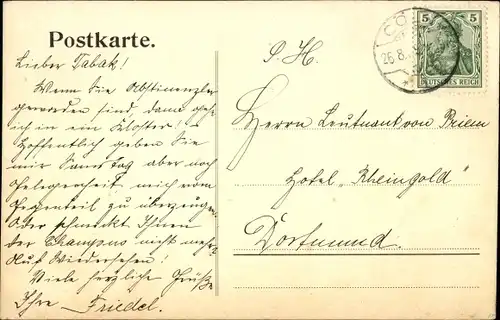 Postkarte.
Lieber Tabak!
Wenn Sie Abstinenzler
geworden sind, dann geh
ich in ein Kloster! –
Hoffentlich geben Sie
mir Samstag aber noch
Gelegenheit, mich vom
Gegenteil zu überzeugen
Oder schmeckt Ihnen
der Champus nicht mehr?
Auf Wiedersehen!
Viele herzliche Grüße
Ihre Friedel.
CÖ
26.8.
5 5
DEUTSCHES REICH
S. H.
Herrn Leutnant von
Hotel „Rheingold"
Dortmund.